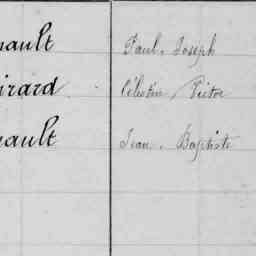 nault Paul, Joseph
irard Célestin, Victor
nault Jean, Baptiste